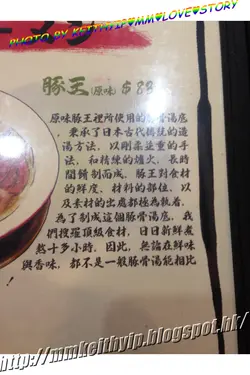 KEITHYIP♥MM♥LOVE♥STORY
豚王(原味)$83
原味豚王裡所使用的豚骨湯底
，秉承了日本古代傳統的造
湯方法，以剛柔並重的手
法，和精練的爐火，長時
間餚制而成。豚王對食材
的鮮度、材料的部位，以
及素材的出處都極為執着，
為了制成這個豚骨湯底，我
們搜羅頂級食材，日日新鮮煮
熬十多小時，因此，無論在鮮味
與香味，都不是一般豚骨湯能相比
http://mmkeithyip.blogspot.hk/